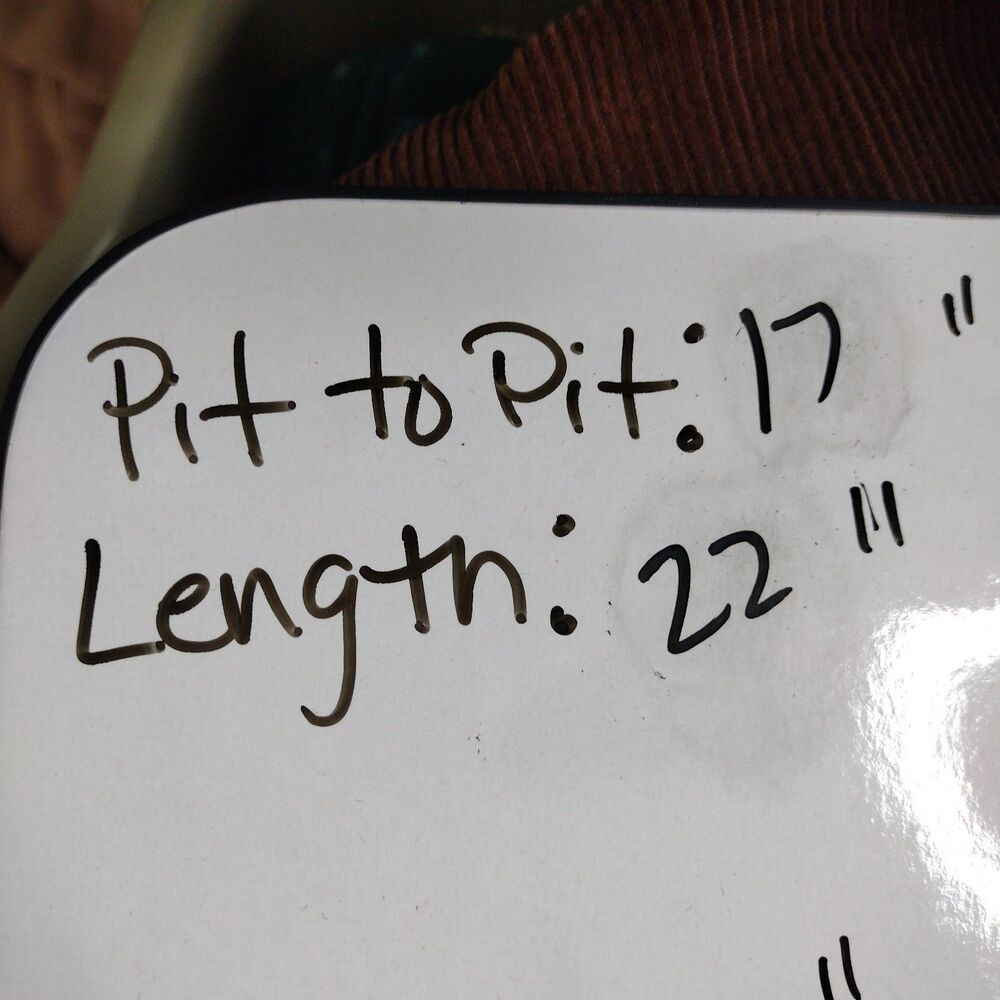 Pit to Pit: 17 "
Length: 22 "
"